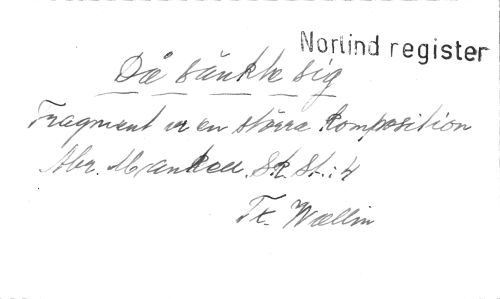 Norlind register
Då sänkte sig
Fragment ur en större komposition
Abr. Mankell. Sk. St.: 4
Tx. Wallin